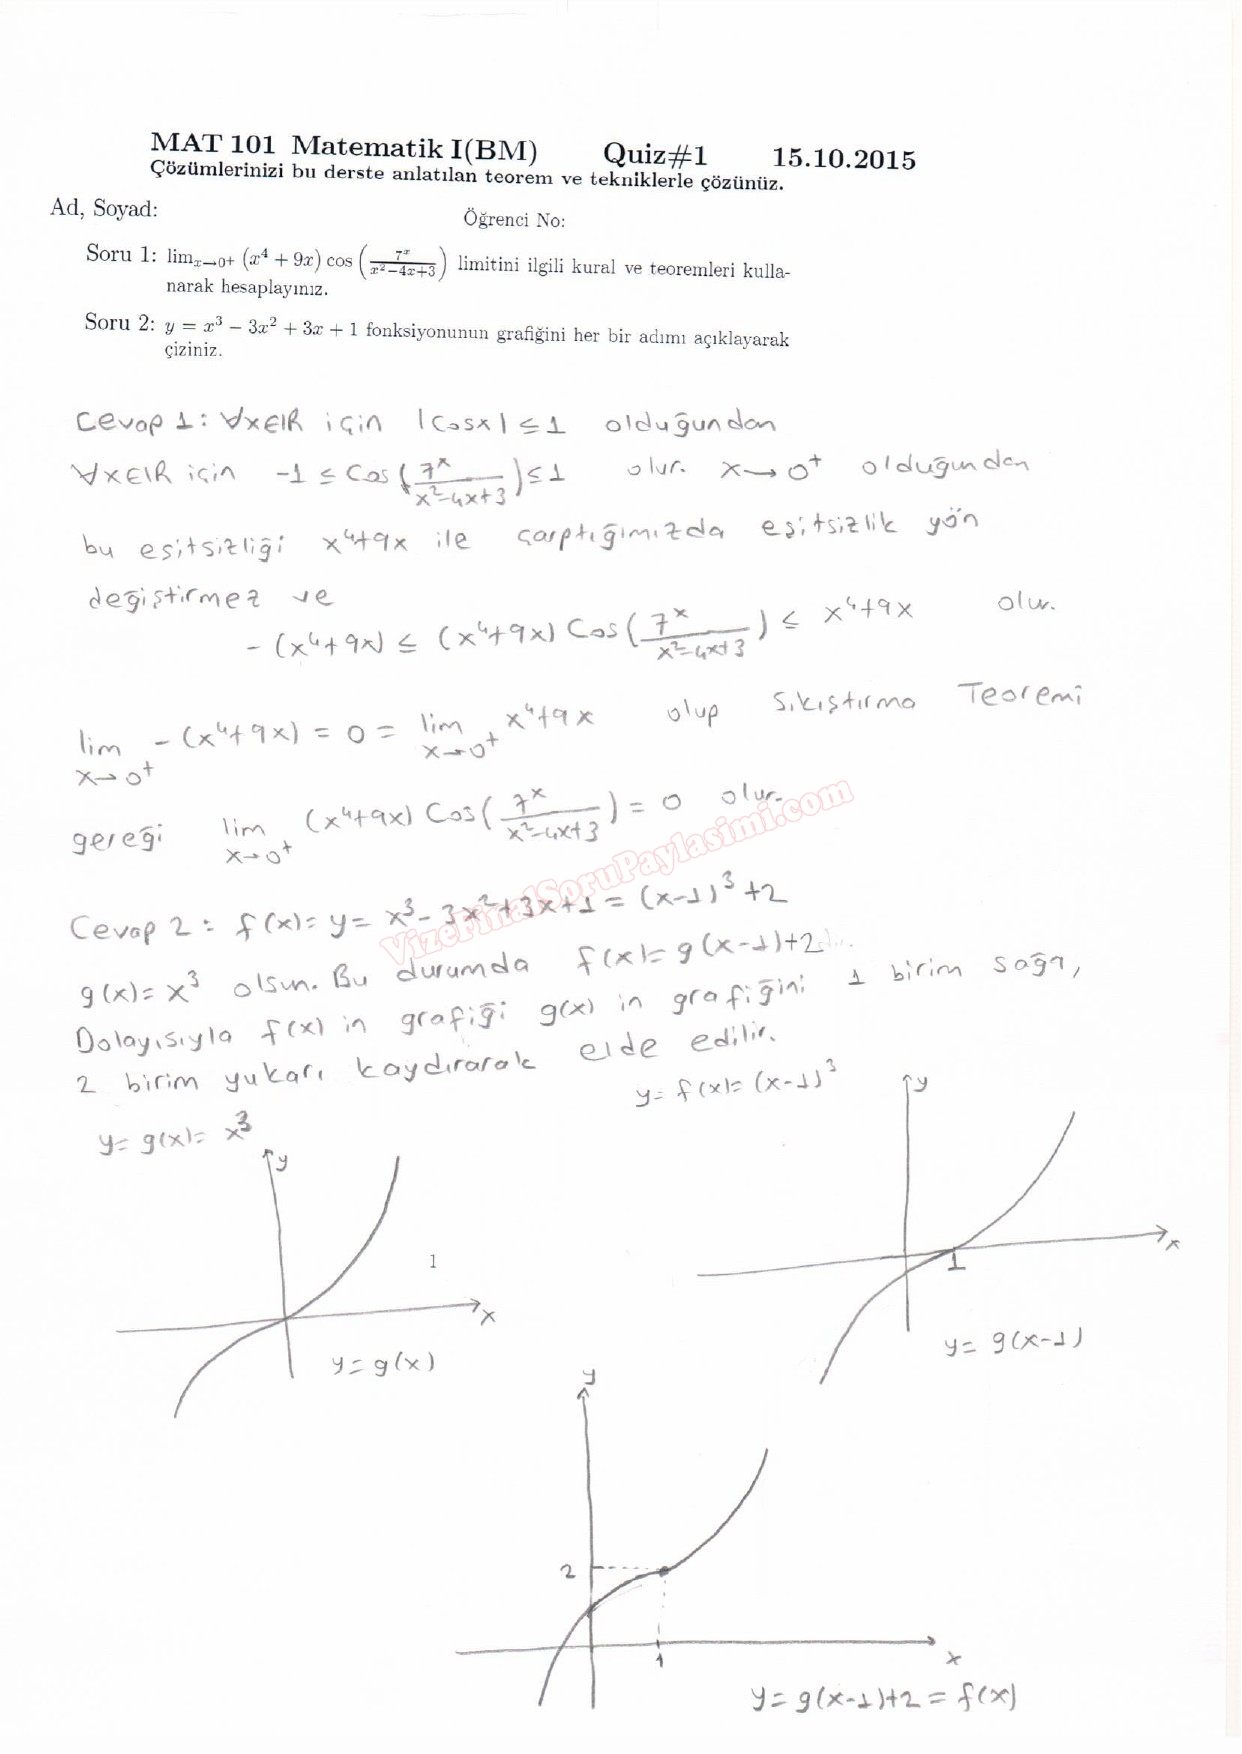 MAT 101 Matematik I(BM) Quiz#1 15.10.2015
Çözümlerinizi bu derste anlatılan teorem ve tekniklerle çözünüz.
Ad, Soyad: Öğrenci No:
Soru 1: lim_{x→0+} (x^4 + 9x) cos (7^x / (x^2−4x+3)) limitini ilgili kural ve teoremleri kulla-
narak hesaplayınız.
Soru 2: y = x^3 − 3x^2 + 3x + 1 fonksiyonunun grafiğini her bir adımı açıklayarak
çiziniz.
Cevap 1: ∀x∈IR için |Cosx| ≤ 1 olduğundan
∀x∈IR için -1 ≤ Cos(7^x / (x^2-4x+3)) ≤ 1 olur. x→0^+ olduğundan
bu eşitsizliği x^4+9x ile çarptığımızda eşitsizlik yön
değiştirmez ve
-(x^4+9x) ≤ (x^4+9x) Cos(7^x / (x^2-4x+3)) ≤ x^4+9x olur.
lim_{x→0^+} -(x^4+9x) = 0 = lim_{x→0^+} x^4+9x olup Sıkıştırma Teoremi
gereği lim_{x→0^+} (x^4+9x) Cos(7^x / (x^2-4x+3)) = 0 olur.
VizeFinalSoruPaylasimi.com
Cevap 2: f(x)= y= x^3-3x^2+3x+1 = (x-1)^3+2
g(x)= x^3 olsun. Bu durumda f(x)= g(x-1)+2
Dolayısıyla f(x) in grafiği g(x) in grafiğini 1 birim sağa,
2 birim yukarı kaydırarak elde edilir.
y= f(x)= (x-1)^3
y= g(x)= x^3
y
x
y= g(x)
1
y
1
x
y= g(x-1)
y
2
1
x
y= g(x-1)+2 = f(x)